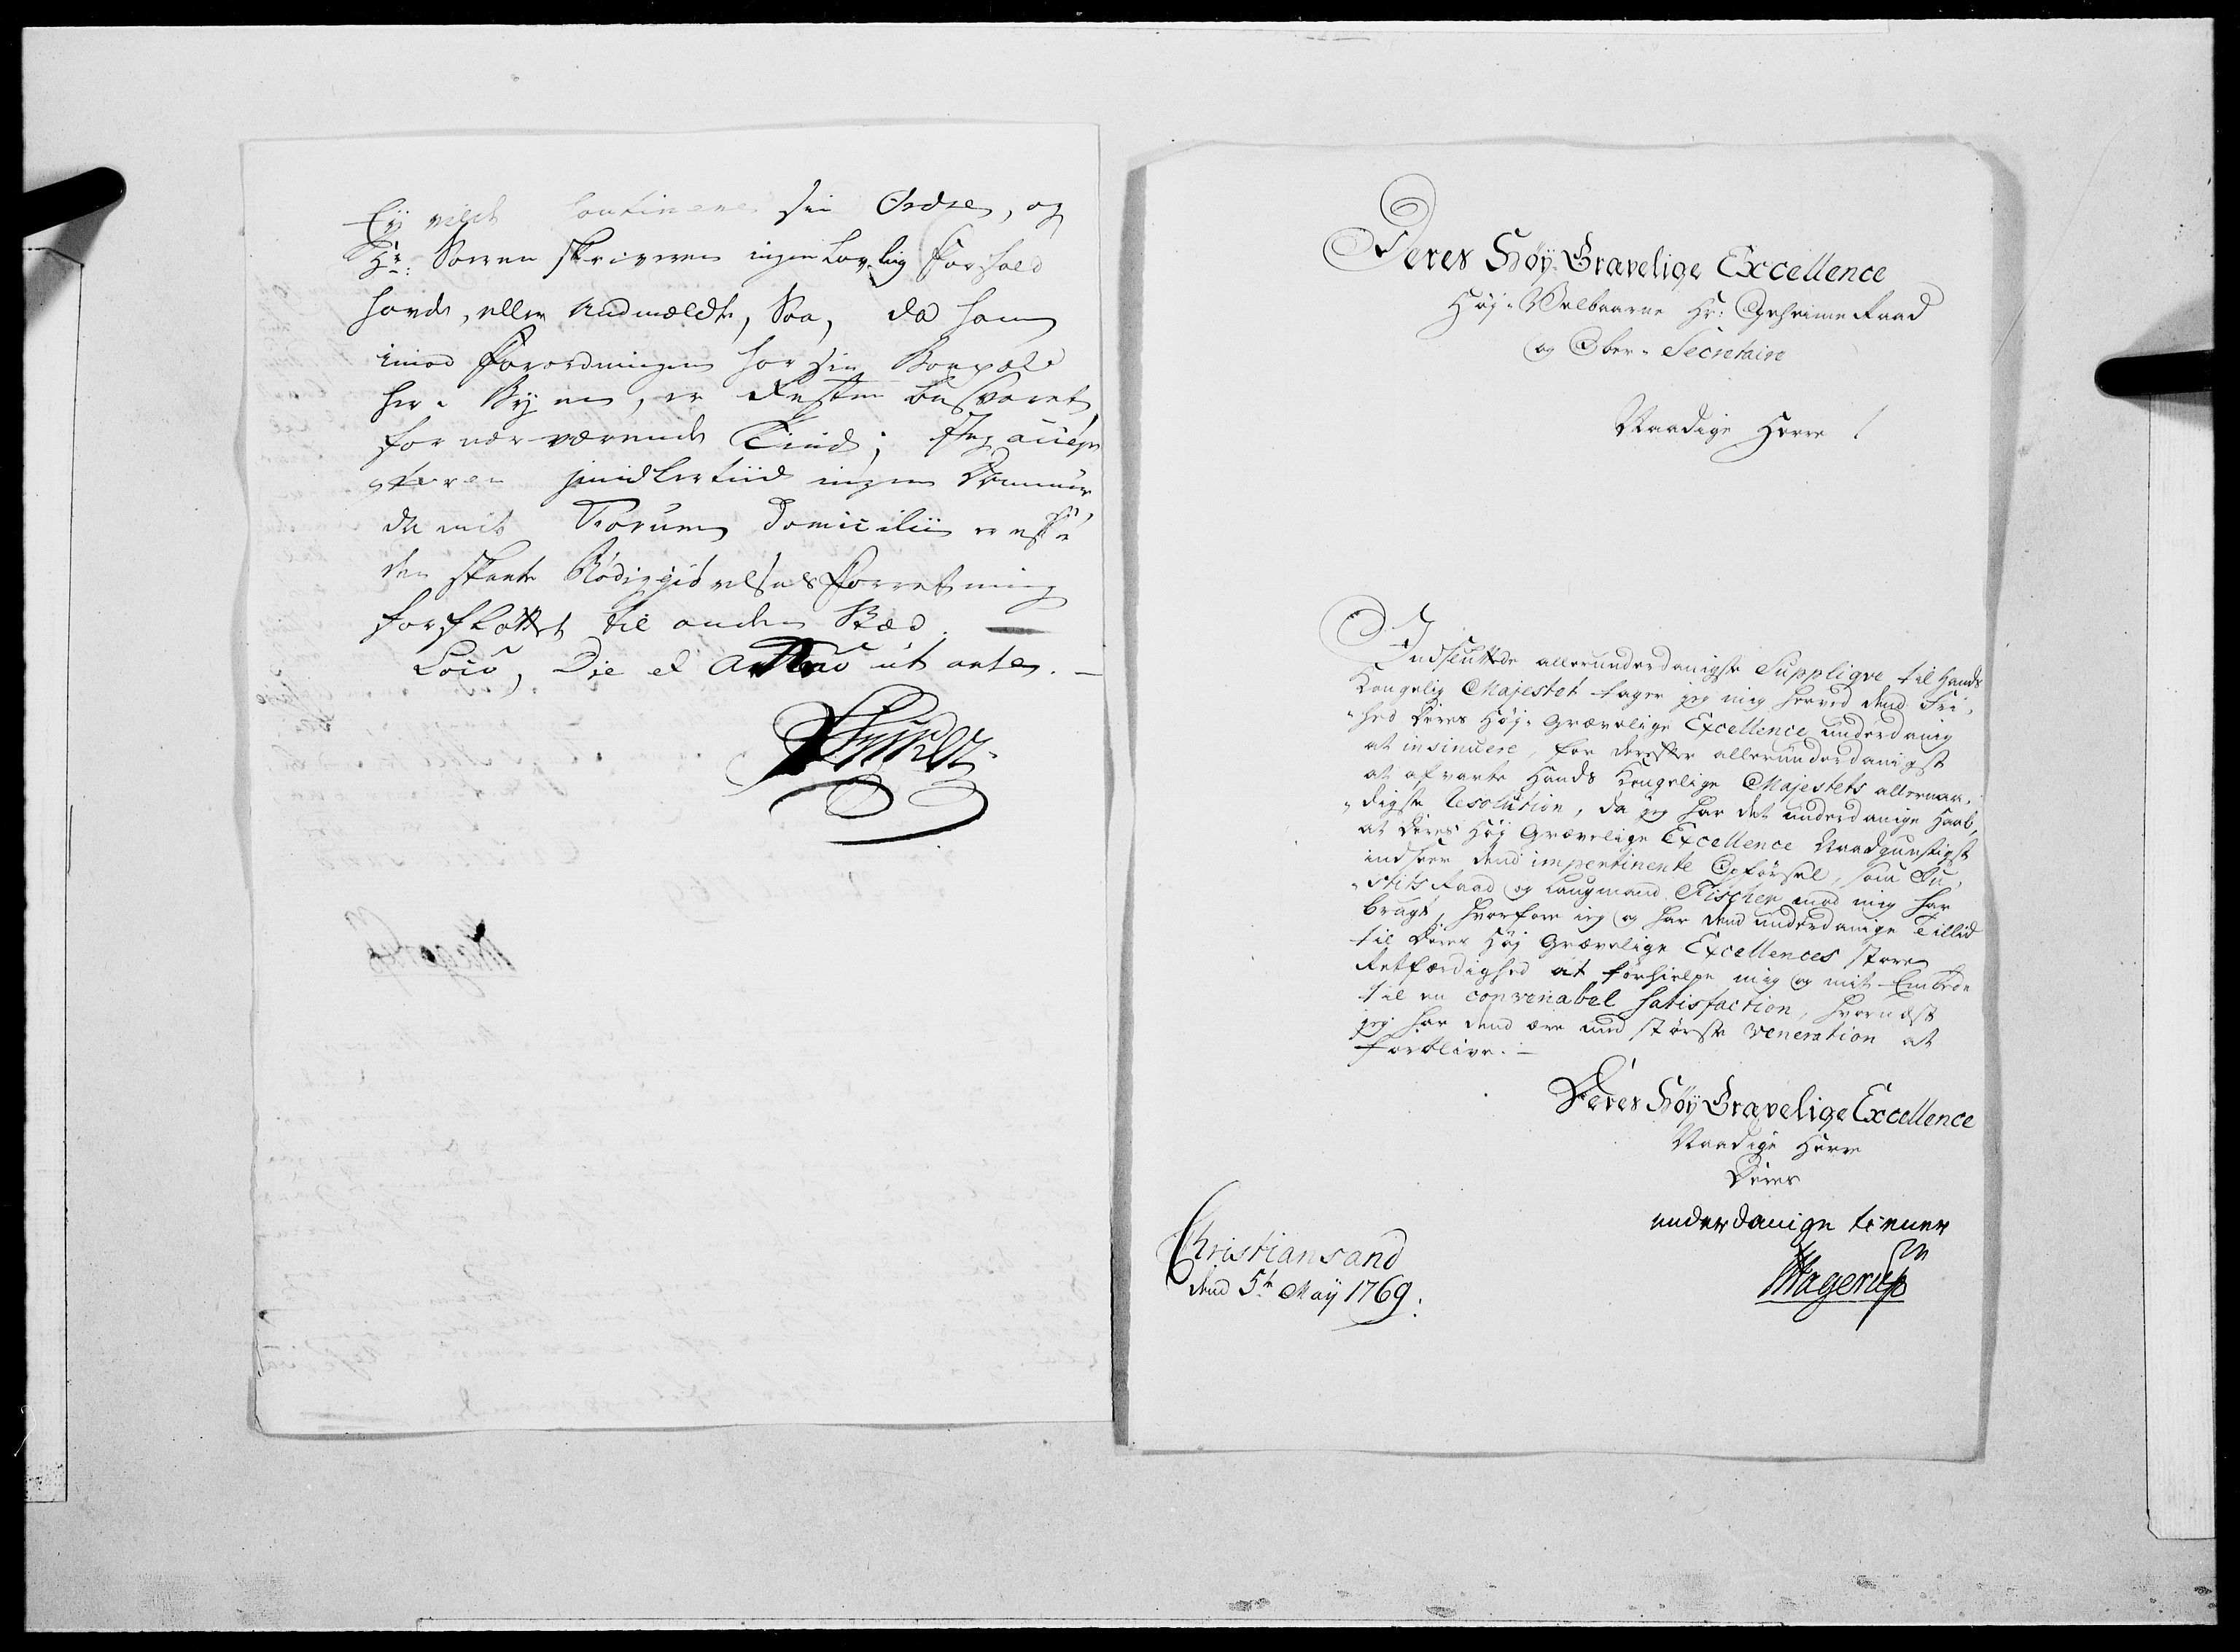 Eÿ vilde continuere sin Ordre, og
Hr: Sorenskriveren ingen Lovlig forfald
havde, eller anmældte, saa, da han
imod forordningen har sin Boepæl
her i Byen, er Resten besvaret
for nærværende Tiid; Jeg accep-
terer imidlertiid ingen Dommer
da mit Forum Domicilii er
den skeete Rødiggiørelses Forretning
forfløttet til anden Stæd.
Loco, Die et Anno ut ante.
Deres Höÿ-Grævelige Excellence
Höj-Velbaarne Hr: Geheime Raad
og Ober-Secretaire
Naadige Herre!
Indsluttede allerunderdanigste Suppliqve til Hands
Kongelig Majestet tager jeg mig herved dend Fri-
hed Deres Høj-Grævelige Excellence underdanig
at insinuere, for derefter allerunderdanigst
at afvarte Hands Kongelige Majestets allernaa-
digste Resolution, da jeg har det underdanige Haab,
at Deres Høj Grævelige Excellence Naadgunstigst
indseer dend impertinente Opførsel, som Ju-
stits Raad og Laugmand Fischer mod mig har
brugt, hvorfore jeg og har dend underdanige Tillid
til Deres Høj Grævelige Excellences store
Retfærdighed at forhielpe mig og mit Embede
til en convenabel Satisfaction, hvornæst
jeg har dend ære med største veneration at
forblive.
Deres Höÿ Grævelige Excellence
Naadige Herre
Deres
underdanige tiener
Hagerup
Christiansand
dend 5te Maÿ 1769.